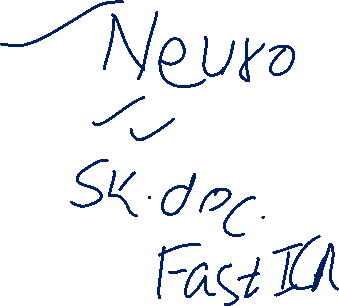 Neuro
SK.doc.
FastICA